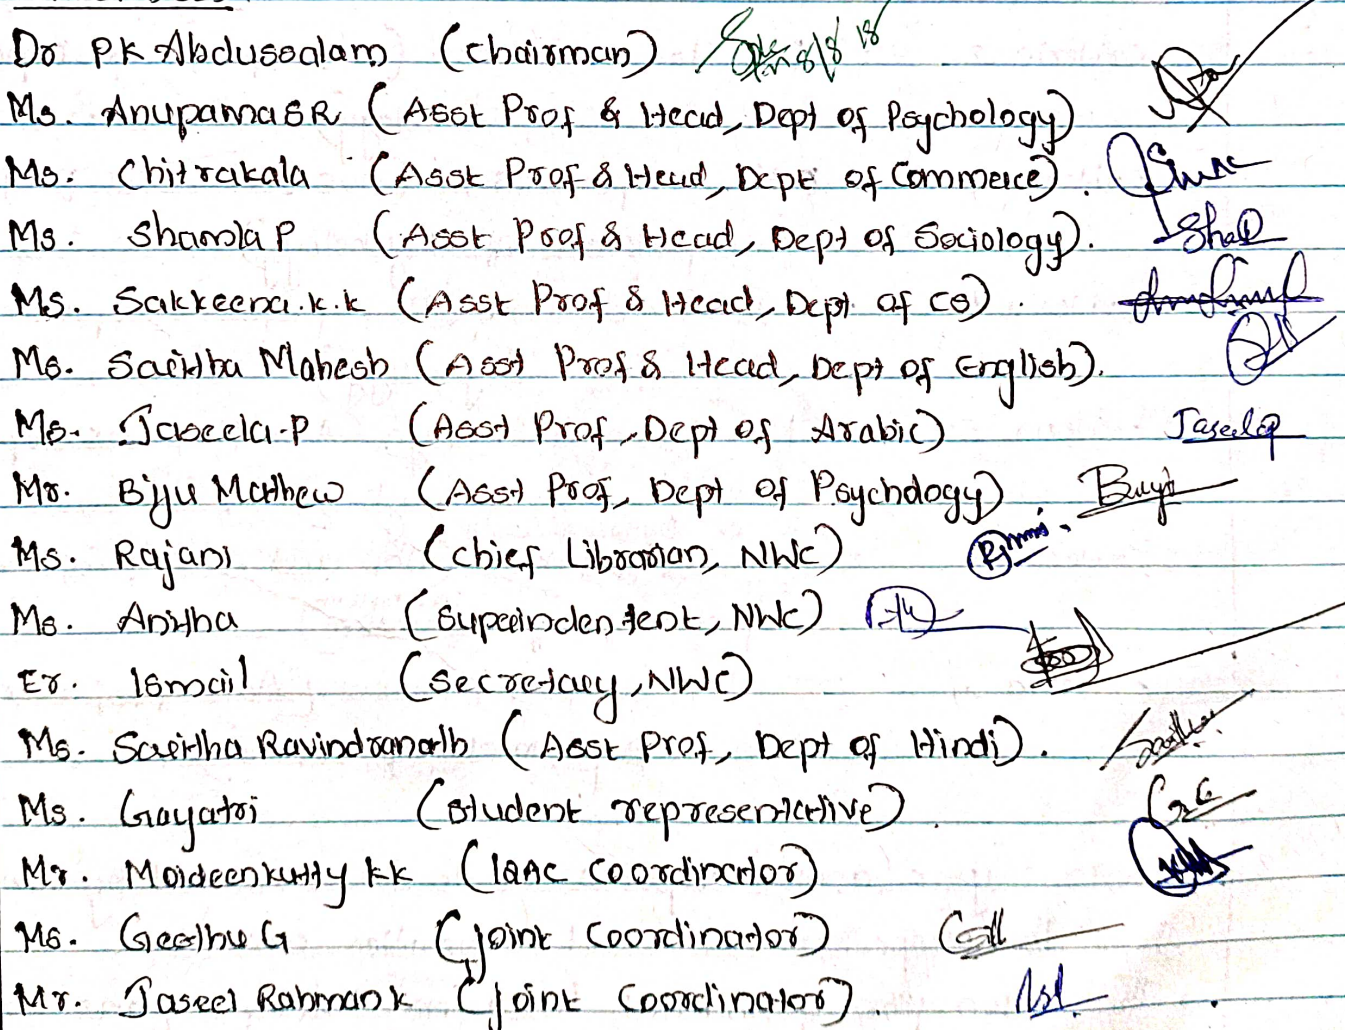 Dr PK Abdusalam (Chairman) 8/8/18
Ms. Anupama SR (Asst Prof & Head, Dept of Psychology)
Ms. Chitrakala (Asst Prof & Head, Dept of Commerce).
Ms. Shamla P (Asst Prof & Head, Dept of Sociology).
Ms. Sakkeena.k.k (Asst Prof & Head, Dept of CS).
Ms. Saritha Mahesh (Asst Prof & Head, Dept of English).
Ms. Jaseela.P (Asst Prof, Dept of Arabic) Jaseela P
Mr. Bijju Mathew (Asst Prof, Dept of Psychology)
Ms. Rajani (Chief Librarian, NWC)
Ms. Anitha (Superindentent, NWC)
Er. Ismail (Secretary, NWC)
Ms. Saritha Ravindranath (Asst Prof, Dept of Hindi).
Ms. Gayatri (Student representative).
Mr. Moideenkutty kk (IQAC Coordinator)
Ms. Geethu G (Joint Coordinator)
Mr. Jaseel Rahman k (Joint Coordinator).